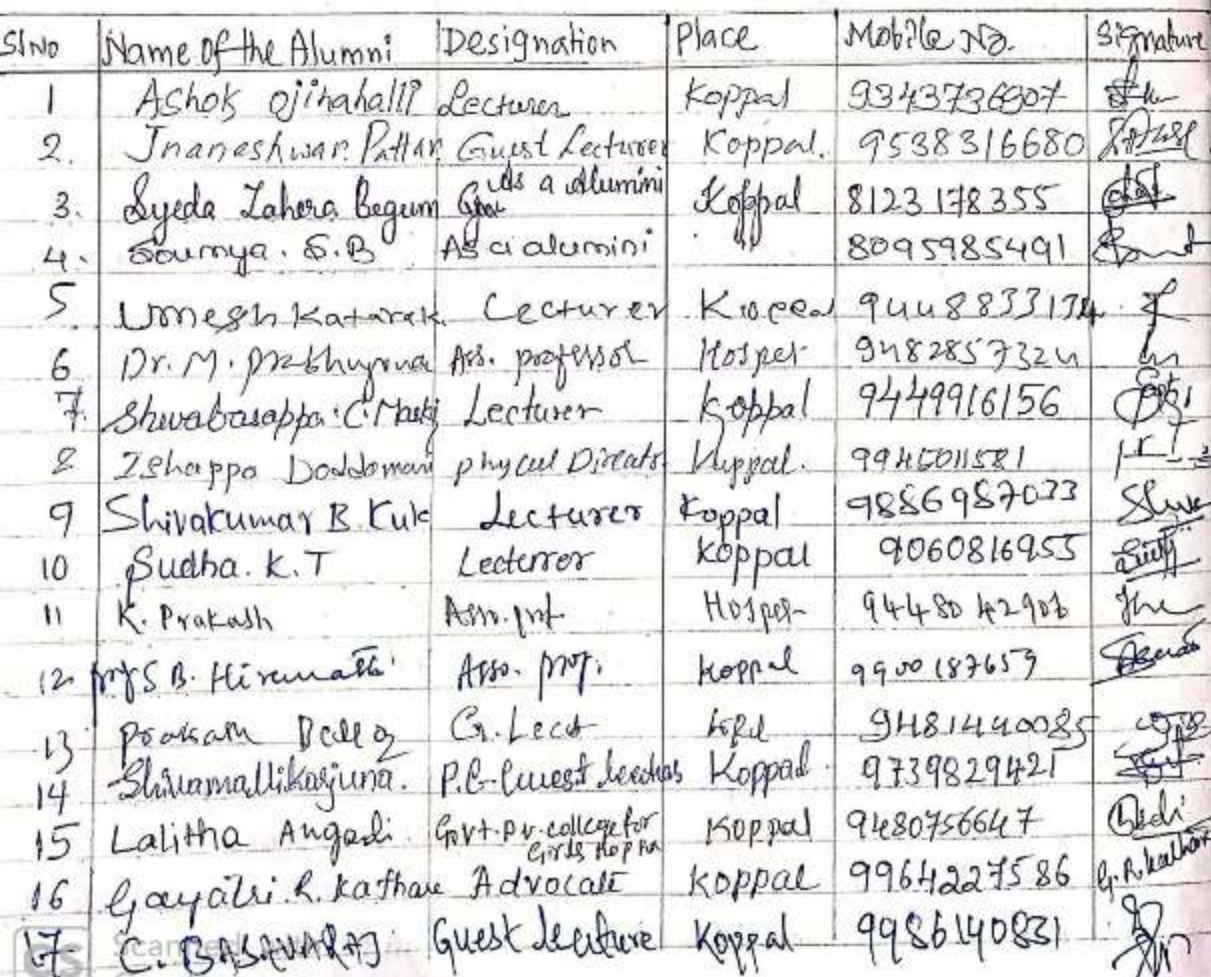 Sl No Name of the Alumni Designation Place Mobile No. Signature
1 Ashok ojinahalli Lecturer Koppal 9343736907
2. Jnaneshwar. Pattar Guest Lecturer Koppal. 9538316680
3. Syeda Zahera Begum As a alumini Koppal 8123178355
4. Soumya. S.B As a alumini " 8095985491
5. Umesh Katarak. Lecturer 9448833134
6 Dr. M. Ass. professor Hospet 9482857324
7. Shivabasappa C. Lecturer Koppal 9449916156
8 Ishappa Doddomani Koppal. 9945011581
9 Shivakumar B Kuk Lecturer Koppal 9886987033
10 Sudha. K.T Lecterror Koppal 9060816955
11 K. Prakash Asso. prof Hospet
12 prof S B. Hiremath Asso. prof. Koppal 9900187659
13 Prakash G. Lect 9481440085
14 Shivamallikarjuna. P.G- Guest Koppal. 9739829421
15 Lalitha Angadi. Govt. p.u. college for Girls Koppal Koppal 9480756647
16 Gayatri. R. Kathare Advocate Koppal 9964227586 G. R. Kathare
17 C. BASAVARAJ Guest Lecture Koppal 9986140831
CS Scanned